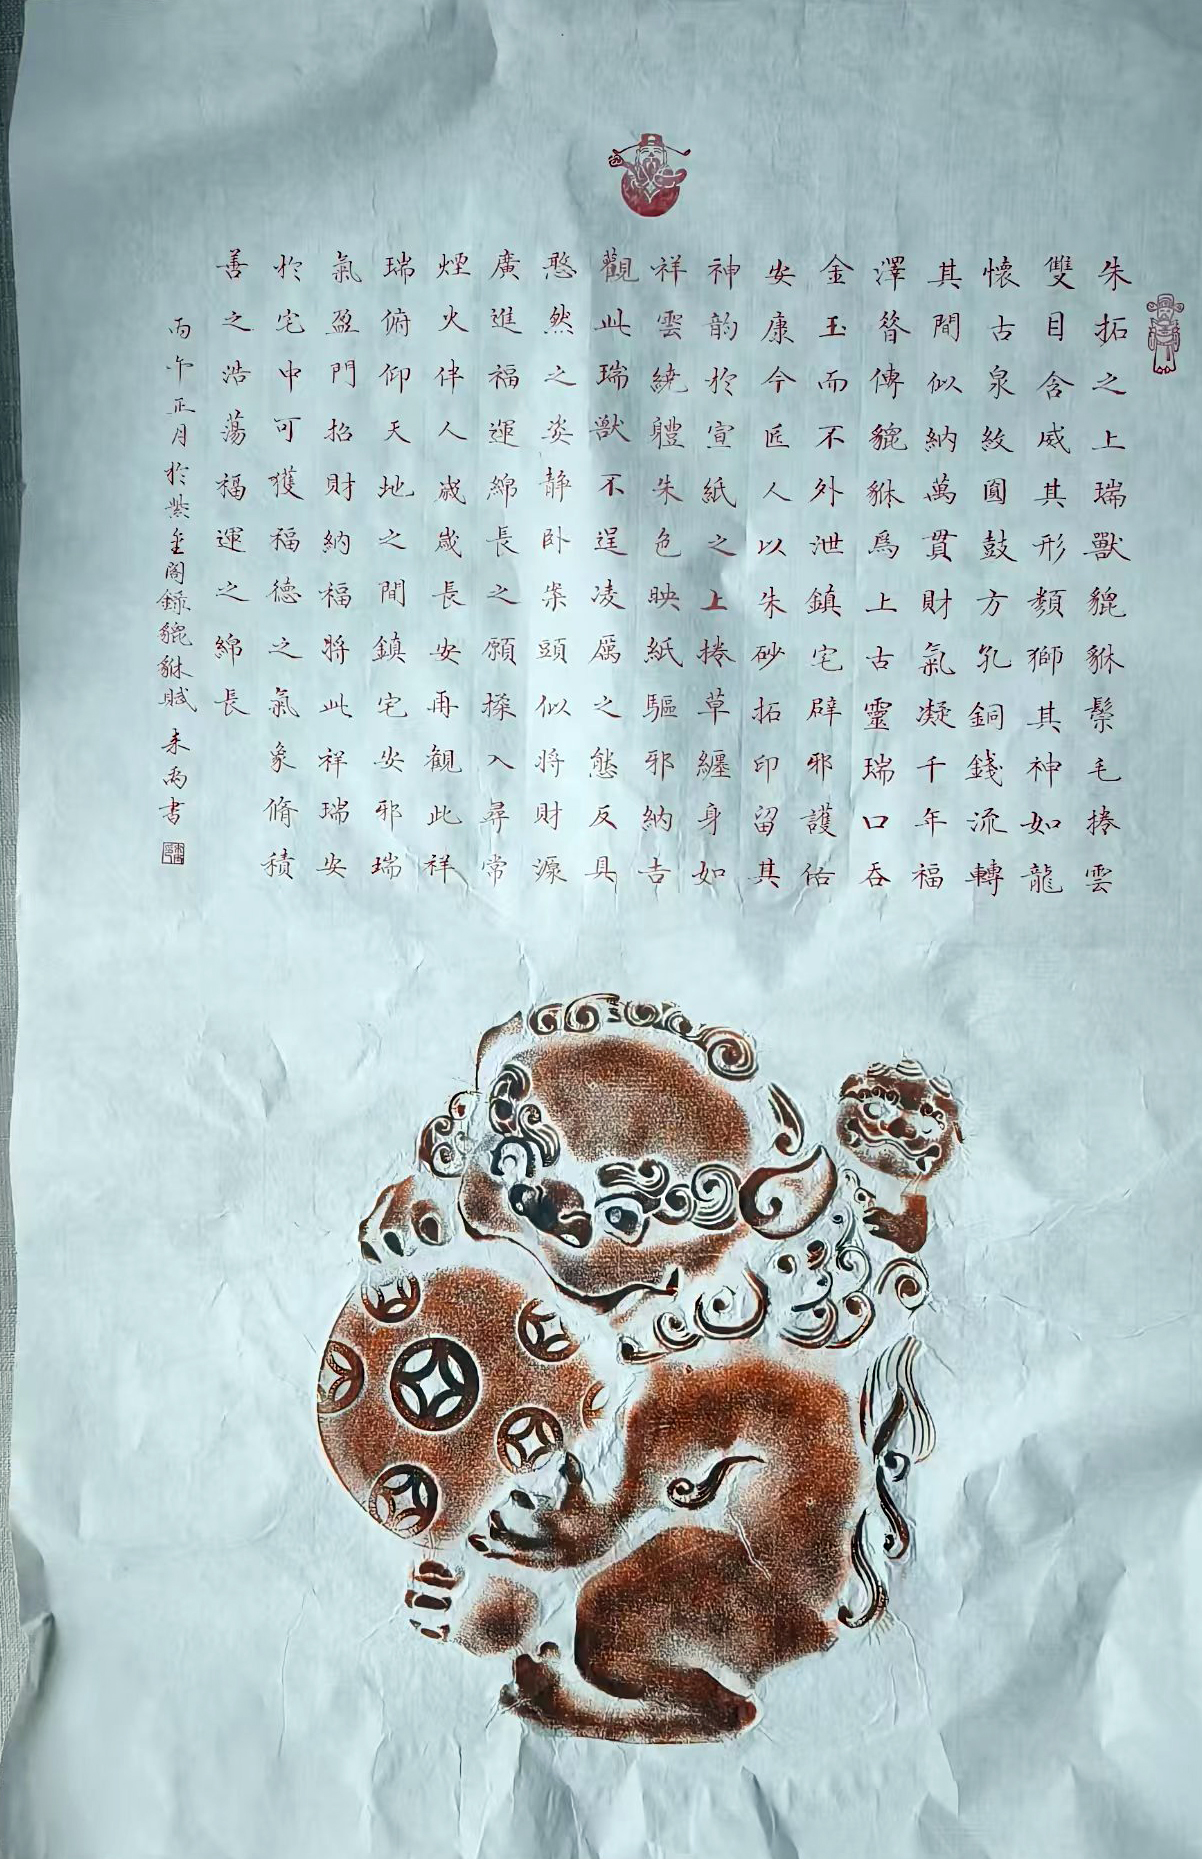 朱拓之上瑞獸貔貅鬃毛捲雲
雙目含威其形類獅其神如龍
懷古泉紋圓鼓方孔銅錢流轉
其間似納萬貫財氣凝千年福
澤昝傳貔貅爲上古靈瑞口吞
金玉而不外泄鎮宅辟邪護佑
安康今匠人以朱砂拓印留其
神韵於宣紙之上捲草纏身如
祥雲繞軆朱色映紙驅邪納吉
觀此瑞獸不逞凌厲之態反具
憨然之姿静卧案頭似将財源
廣進福運綿長之願揉入尋常
煙火伴人歲歲長安再觀此祥
瑞俯仰天地之間鎮宅安邪瑞
氣盈門招財納福將此祥瑞安
於宅中可獲福德之氣象脩積
善之浩蕩福運之綿長
丙午正月於紫金阁錄貔貅賦 未雨书